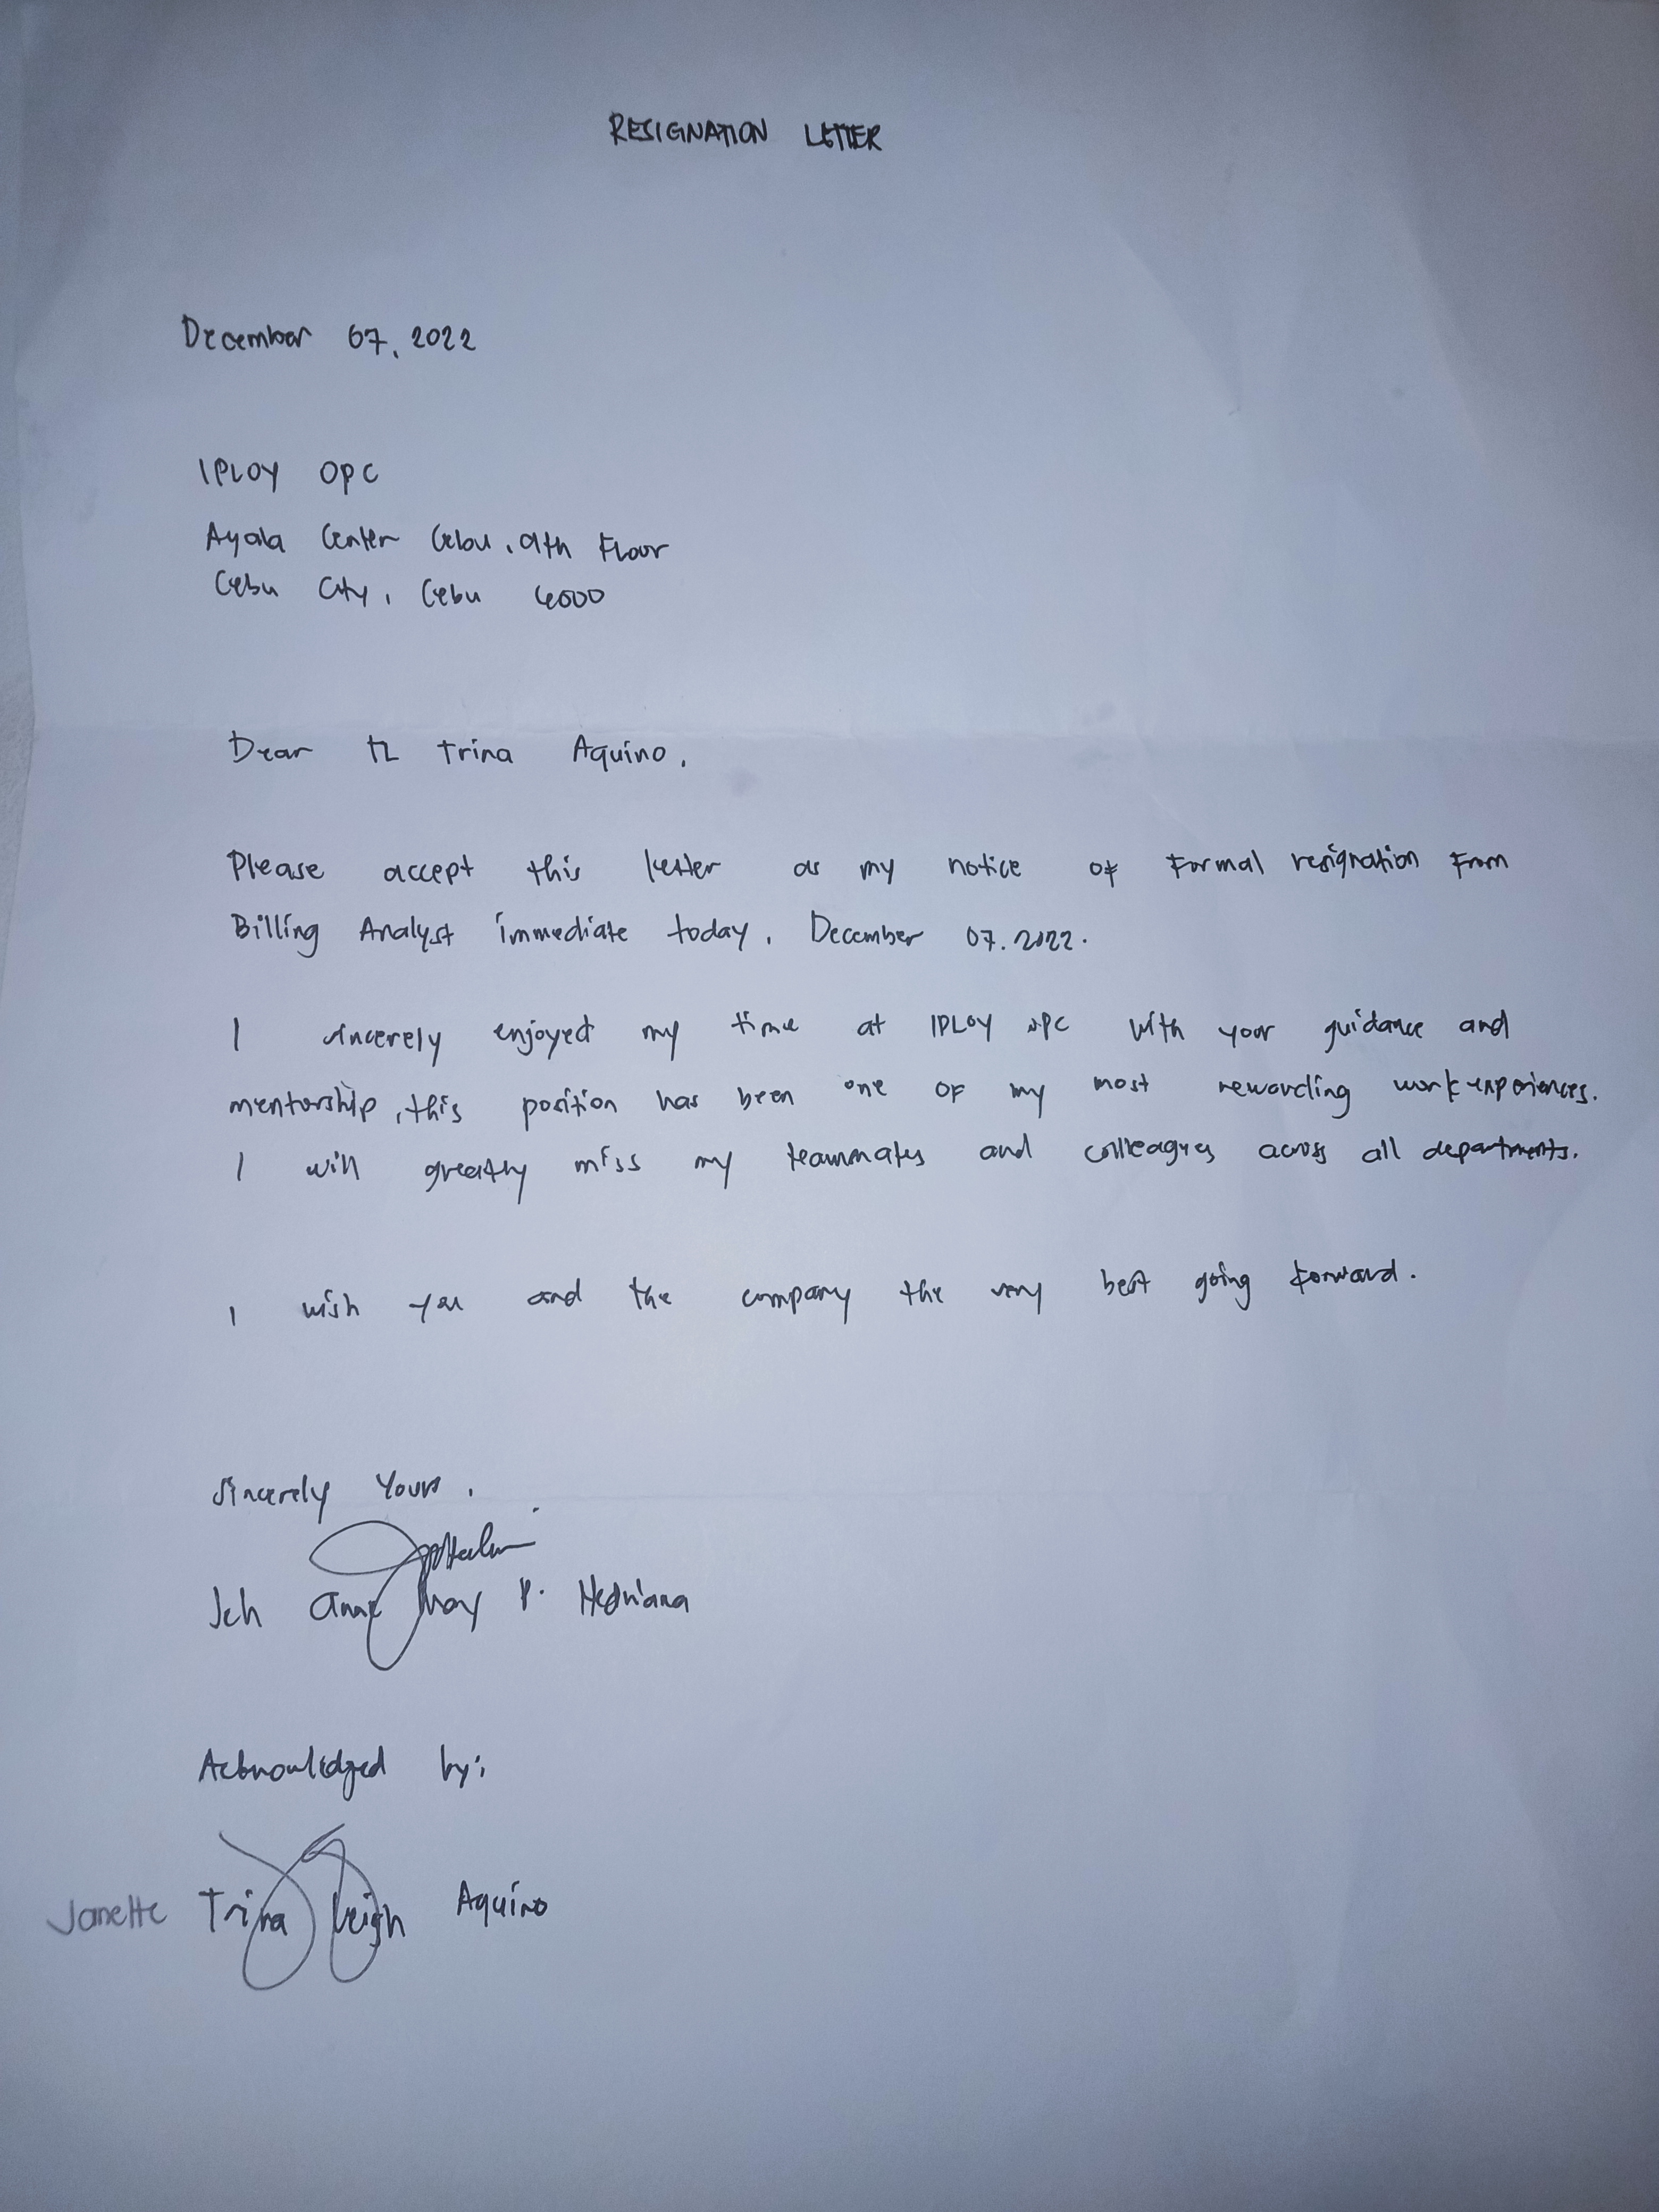 RESIGNATION LETTER
December 07, 2022
IPLOY OPC
Ayala Center Cebu, 9th Floor
Cebu City, Cebu 6000
Dear TL Trina Aquino,
Please accept this letter as my notice of Formal resignation From
Billing Analyst immediate today, December 07, 2022.
I sincerely enjoyed my time at IPLOY OPC with your guidance and
mentorship, this position has been one of my most rewarding work experiences.
I will greatly miss my teammates and colleagues across all departments.
I wish you and the company the very best going forward.
Sincerely Yours,
Jeh Anne P. Hedriana
Acknowledged by:
Janette Trina Leigh Aquino